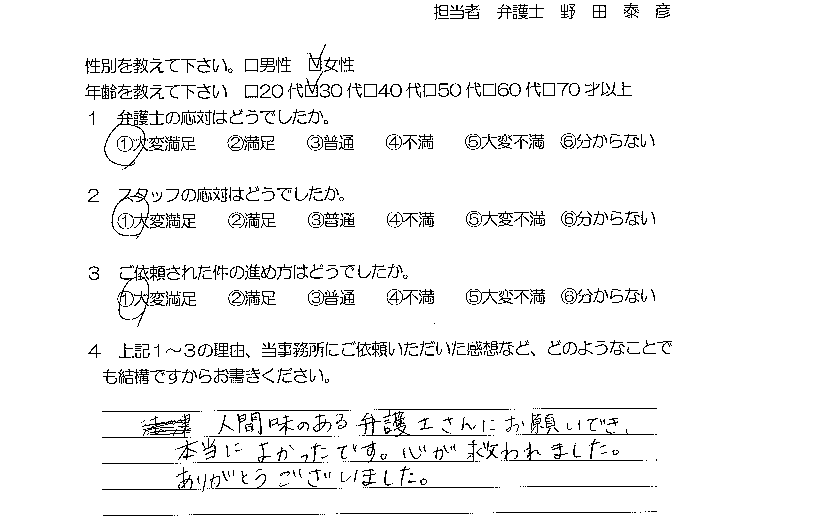 担当者 弁護士 野田泰彦
性別を教えて下さい。□男性 ☑女性
年齢を教えて下さい □20代☑30代□40代□50代□60代□70才以上
1 弁護士の応対はどうでしたか。
①大変満足 ②満足 ③普通 ④不満 ⑤大変不満 ⑥分からない
2 スタッフの応対はどうでしたか。
①大変満足 ②満足 ③普通 ④不満 ⑤大変不満 ⑥分からない
3 ご依頼された件の進め方はどうでしたか。
①大変満足 ②満足 ③普通 ④不満 ⑤大変不満 ⑥分からない
4 上記1～3の理由、当事務所にご依頼いただいた感想など、どのようなことで
も結構ですからお書きください。
人間味のある弁護士さんにお願いでき、
本当によかったです。心が救われました。
ありがとうございました。